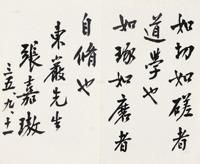 如切如磋者
道學也
如琢如磨者
自脩也
東巖先生
張嘉璈
三五九十